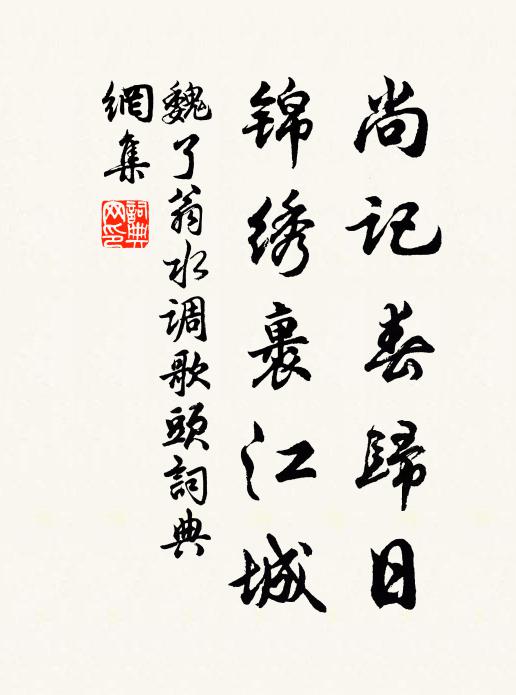 尚记春歸日
锦绣裹江城
魏了翁水调歌頭詞典
網集
詞典
网印